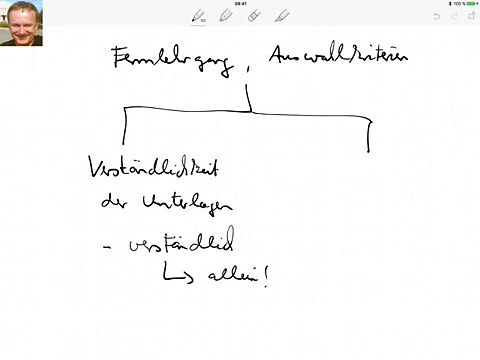 09:41
100 %
Fernlehrgang, Auswahlkriterien
Verständlichkeit
der Unterlagen
- verständlich
↳ allein!